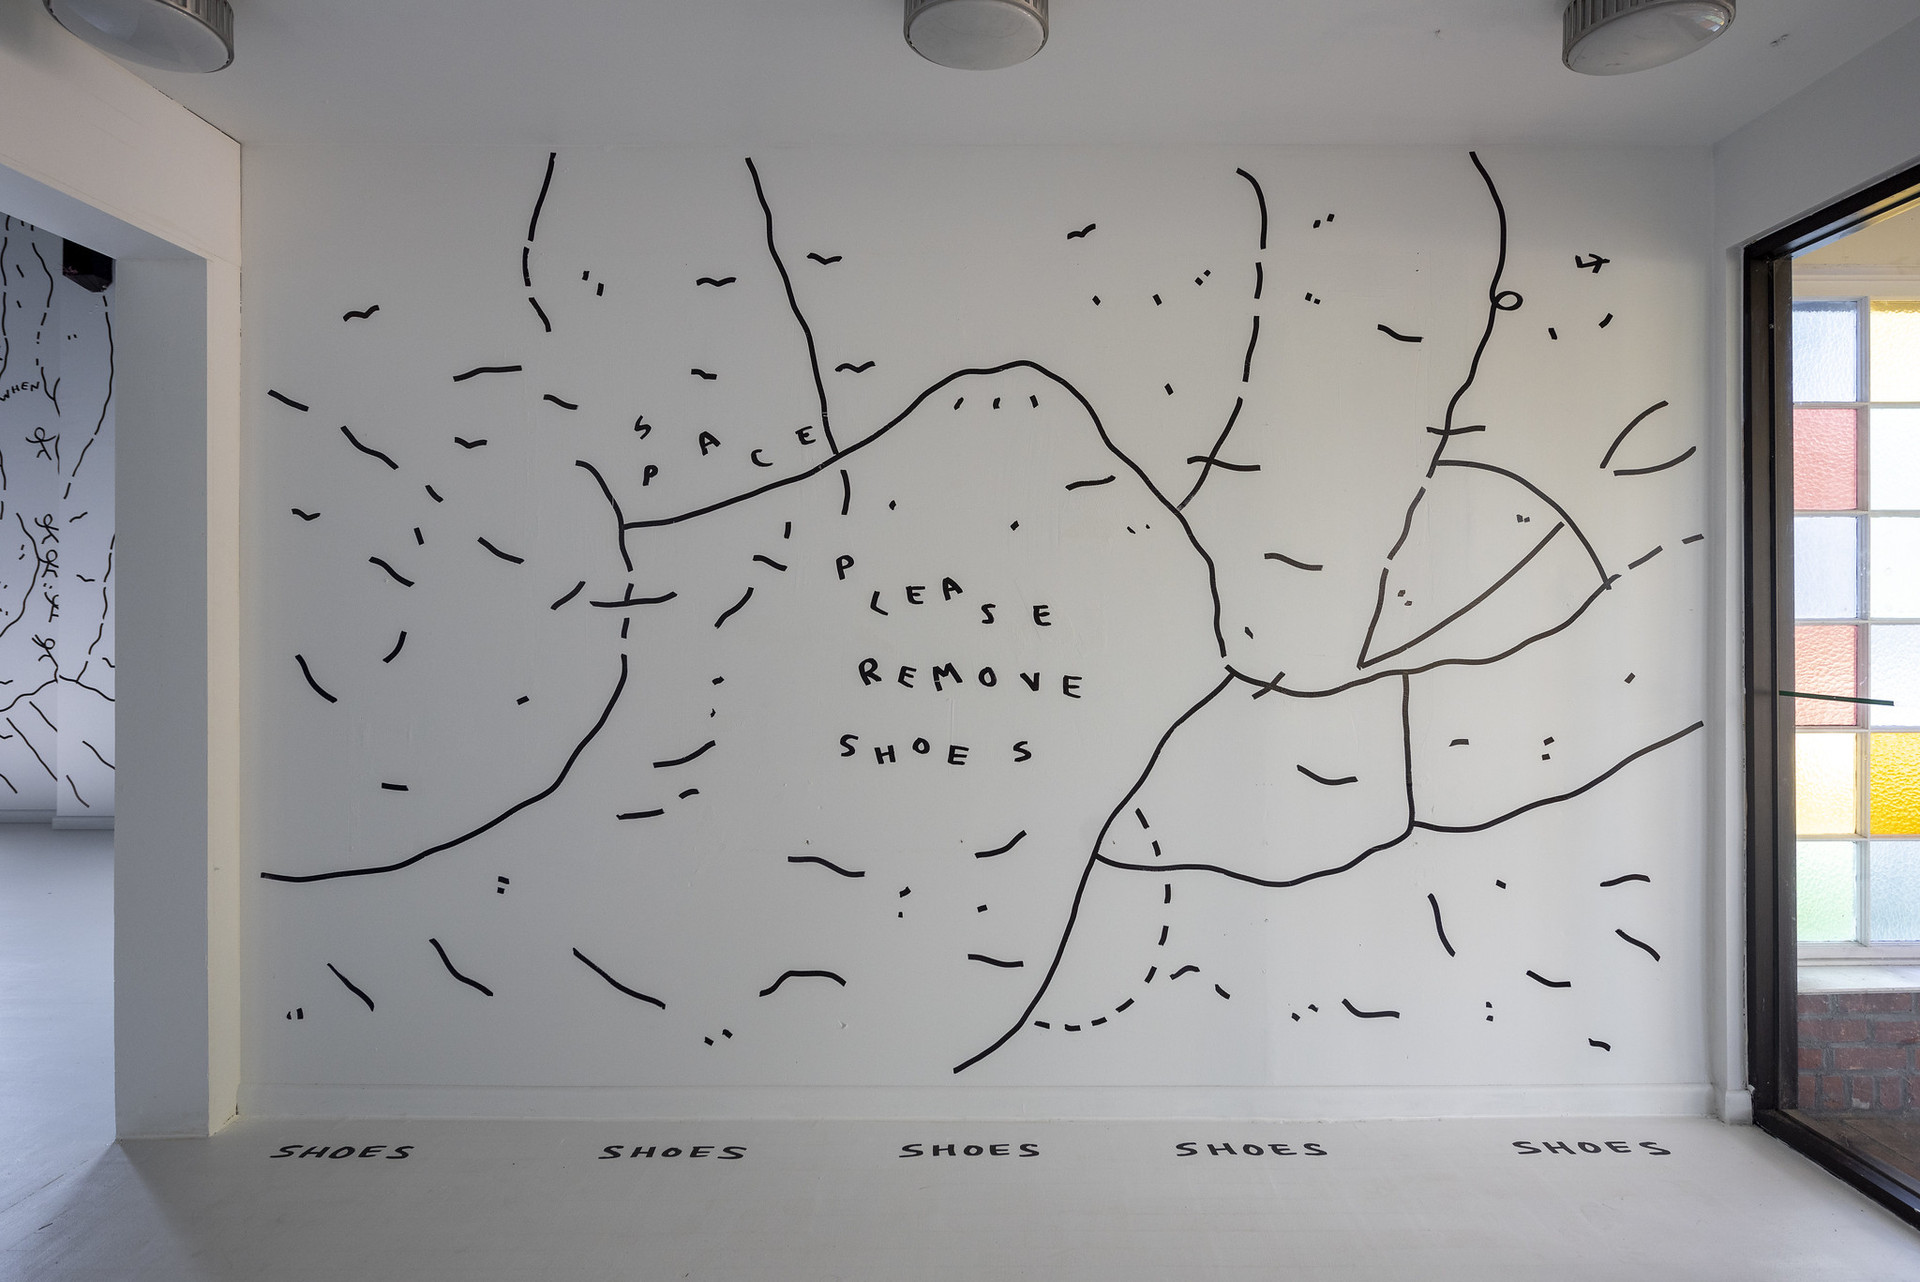 WHEN
SPACE
PLEASE
REMOVE
SHOES
SHOES SHOES SHOES SHOES SHOES